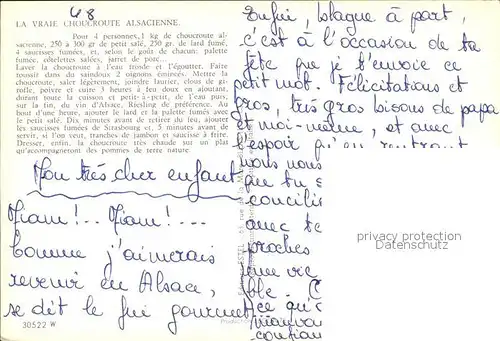 68
LA VRAIE CHOUCROUTE ALSACIENNE.
Pour 4 personnes, 1 kg de choucroute al-
sacienne, 250 à 300 gr de petit salé, 250 gr. de lard fumé,
4 saucisses fumées, et, selon le goût de chacun: palette
fumée, côtelettes salées, jarret de porc...
Laver la choucroute à l'eau froide et l'égoutter. Faire
roussir dans du saindoux 2 oignons émincés. Mettre la
choucroute, saler légèrement, joindre laurier, clous de gi-
rofle, poivre et cuire 3 heures à feu doux en ajoutant,
durant toute la cuisson et petit-à-petit, de l'eau puis,
sur la fin, du vin d'Alsace, Riesling de préférence. Au
bout d'une heure, ajouter le lard et la palette fumés avec
le petit salé. Dix minutes avant de retirer du feu, ajouter
les saucisses fumées de Strasbourg et, 5 minutes avant de
servir, si l'on veut, tranches de jambon et saucisse à frire.
Dresser, enfin, la choucroute très chaude sur un plat
qu'accompagneront des pommes de terre nature.
Mon très cher enfant
Miam!.. Miam!...
Comme j'aimerais
revenir en Alsace,
se dit le fin gourmet
30522 W
Enfin, blague à part,
c'est à l'occasion de ta
fête que je t'envoie ce
petit mot. Félicitations et
gros, très gros bisous de papa
et moi-même, et avec
l'espoir qu'en rentrant
vous nous
que tu s
concilie
avec te
proches
une vie
ble. C
ce qu'
mauva
confian
privacy protection
Datenschutz